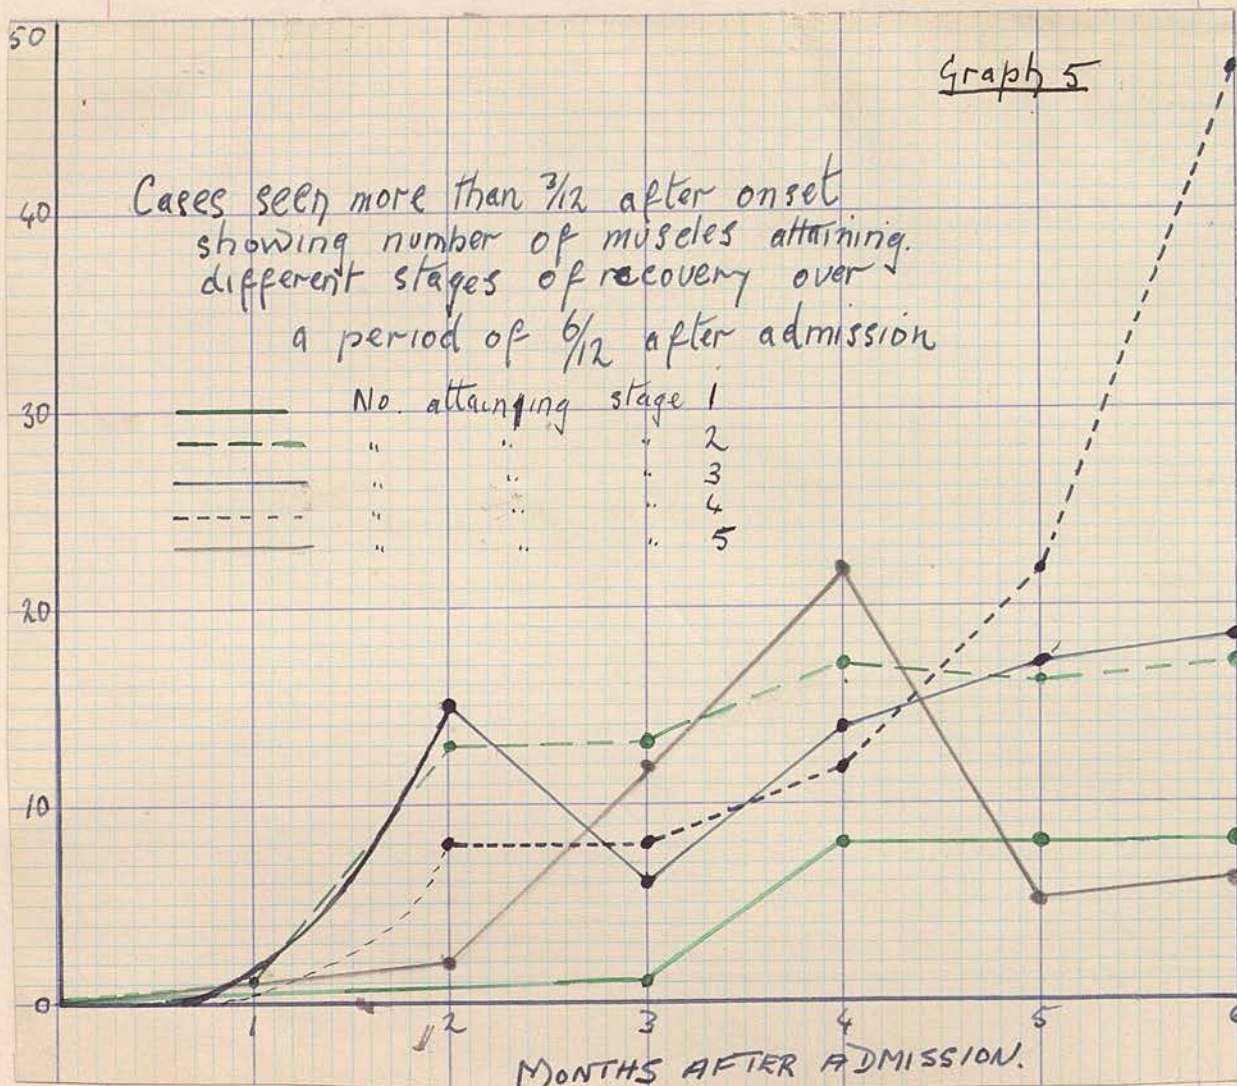 50
Graph 5
Cases seen more than 3/12 after onset
40
showing number of muscles attaining.
different stages of recovery over
a period of 6/12 after admission
30
No. attaining stage 1
" " " 2
" " " 3
" " " 4
" " " 5
20
10
0
1 2 3 4 5 6
MONTHS AFTER ADMISSION.